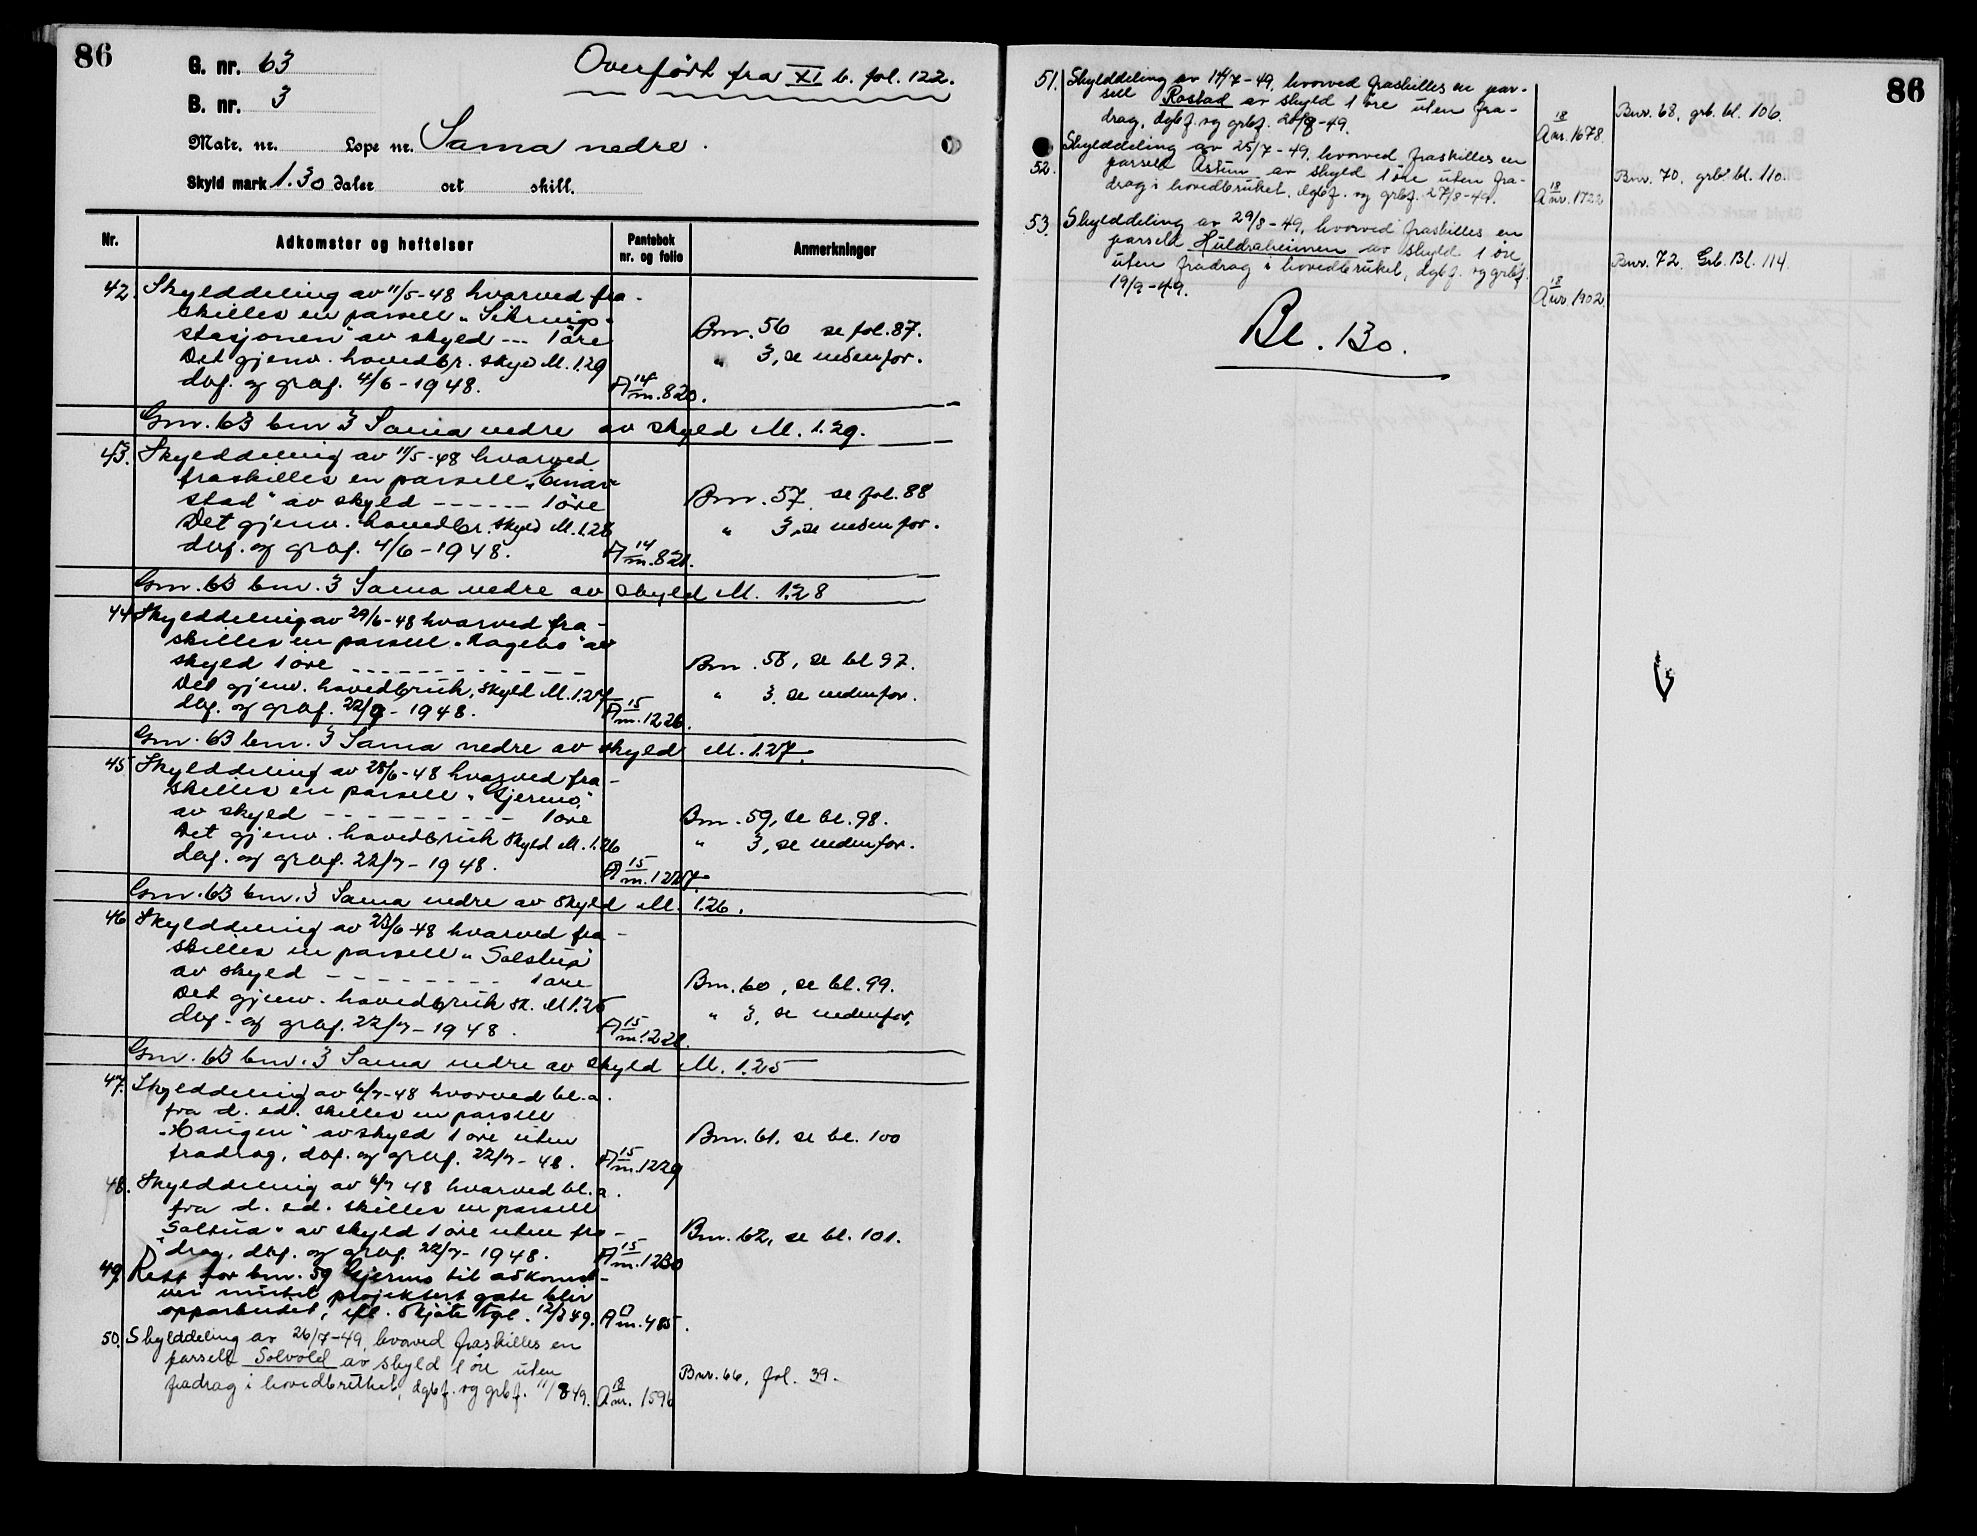 86
G. nr. 63
Overført fra XI b. fol. 122.
B. nr. 3
Matr. nr. Løpe nr. Sama nedre.
Skyld mark 1.30 daler ort skill.
Nr. Adkomster og heftelser Pantebok nr. og folio Anmerkninger
42. Skylddeling av 11/5-48 hvorved fra-
skilles en parsell "Sikrings-
stasjonen" av skyld --- 1 øre Bnr. 56 se fol. 87.
Det gjenv. hovedbr. skyld M. 1.29 " 3, se nedenfor.
dbf. og grbf. 4/6-1948. A 14 nr. 820.
Gnr. 63 bnr 3 Sama nedre av skyld M. 1.29.
43. Skylddeling av 11/5-48 hvorved
fraskilles en parsell "Einar-
stad" av skyld ------ 1 øre Bnr. 57. se fol. 88
Det gjenv. hovedbr. skyld M. 1.28 " 3, se nedenfor.
dbf. og grbf. 4/6-1948. A 14 nr. 821.
Gnr. 63 bnr. 3 Sama nedre av skyld M. 1.28
44. Skylddeling av 29/6-48 hvorved fra-
skilles en parsell "Hagebo" av
skyld 1 øre ------------ Bnr. 58, se bl 97.
Det gjenv. hovedbruk, skyld M. 1.27 " 3, se nedenfor.
dbf. og grbf. 22/7-1948. A 15 nr. 1226.
Gnr. 63 bnr. 3 Sama nedre av skyld M. 1.27.
45 Skylddeling av 28/6-48 hvorved fra-
skilles en parsell "Gjermo"
av skyld --------- 1 øre Bnr. 59, se bl. 98.
Det gjenv. hovedbruk skyld M. 1.26 " 3, se nedenfor.
dbf. og grbf. 22/7-1948. A 15 nr. 1227.
Gnr. 63 bnr. 3 Sama nedre av skyld M. 1.26.
46 Skylddeling av 23/6-48 hvorved fra-
skilles en parsell "Solstua"
av skyld -------- 1 øre Bnr. 60, se bl. 99.
Det gjenv. hovedbruk sk. M 1.25 " 3, se nedenfor.
dbf. og grbf. 22/7-1948. A 15 nr. 1228.
Gnr. 63 bnr. 3 Sama nedre av skyld M. 1.25
47. Skylddeling av 6/7-48 hvorved bl. a.
fra d. ed. skilles en parsell
"Haugen" av skyld 1 øre uten Bnr. 61. se bl. 100
fradrag, dbf. og grbf. 22/7-48. A 15 nr. 1229
48. Skylddeling av 6/7 48 hvorved bl. a.
fra d. ed. skilles en parsell
"Saltua" av skyld 1 øre uten fra- Bnr. 62, se bl. 101.
drag, dbf. og grbf. 22/7-1948. A 15 nr. 1230
49. Rett for bnr. 59 Gjermo til adkomst-
vei inntil projektert gate blir
opparbeidet, ifl. skjøte tgl. 12/3 49. A nr. 485.
50. Skylddeling av 26/7-49, hvorved fraskilles en
parsell Solvold av skyld 1 øre uten Bnr. 66, fol. 39.
fradrag i hovedbruket, dgbf. og grbf. 11/8 49. A 18 nr. 1596
86
51. Skylddeling av 14/7-49, hvorved fraskilles en par-
sell Rostad av skyld 1 øre uten fra- Bnr. 68, grb. bl. 106.
drag, dgbf. og grbf. 20/8-49. A 18 nr. 1678.
52. Skylddeling av 25/7-49, hvorved fraskilles en
parsell Åstun av skyld 1 øre uten fra- Bnr. 70, grb. bl. 110.
drag i hovedbruket, dgbf. og grbf. 27/8-49. A 18 nr. 1722
53. Skylddeling av 29/8-49, hvorved fraskilles en
parsell Huldraheimen av skyld 1 øre
uten fradrag i hovedbruket, dgbf. og grbf. Bnr. 72. Grb. Bl. 114.
19/9-49. A 18 nr 1902
Bl. 130.